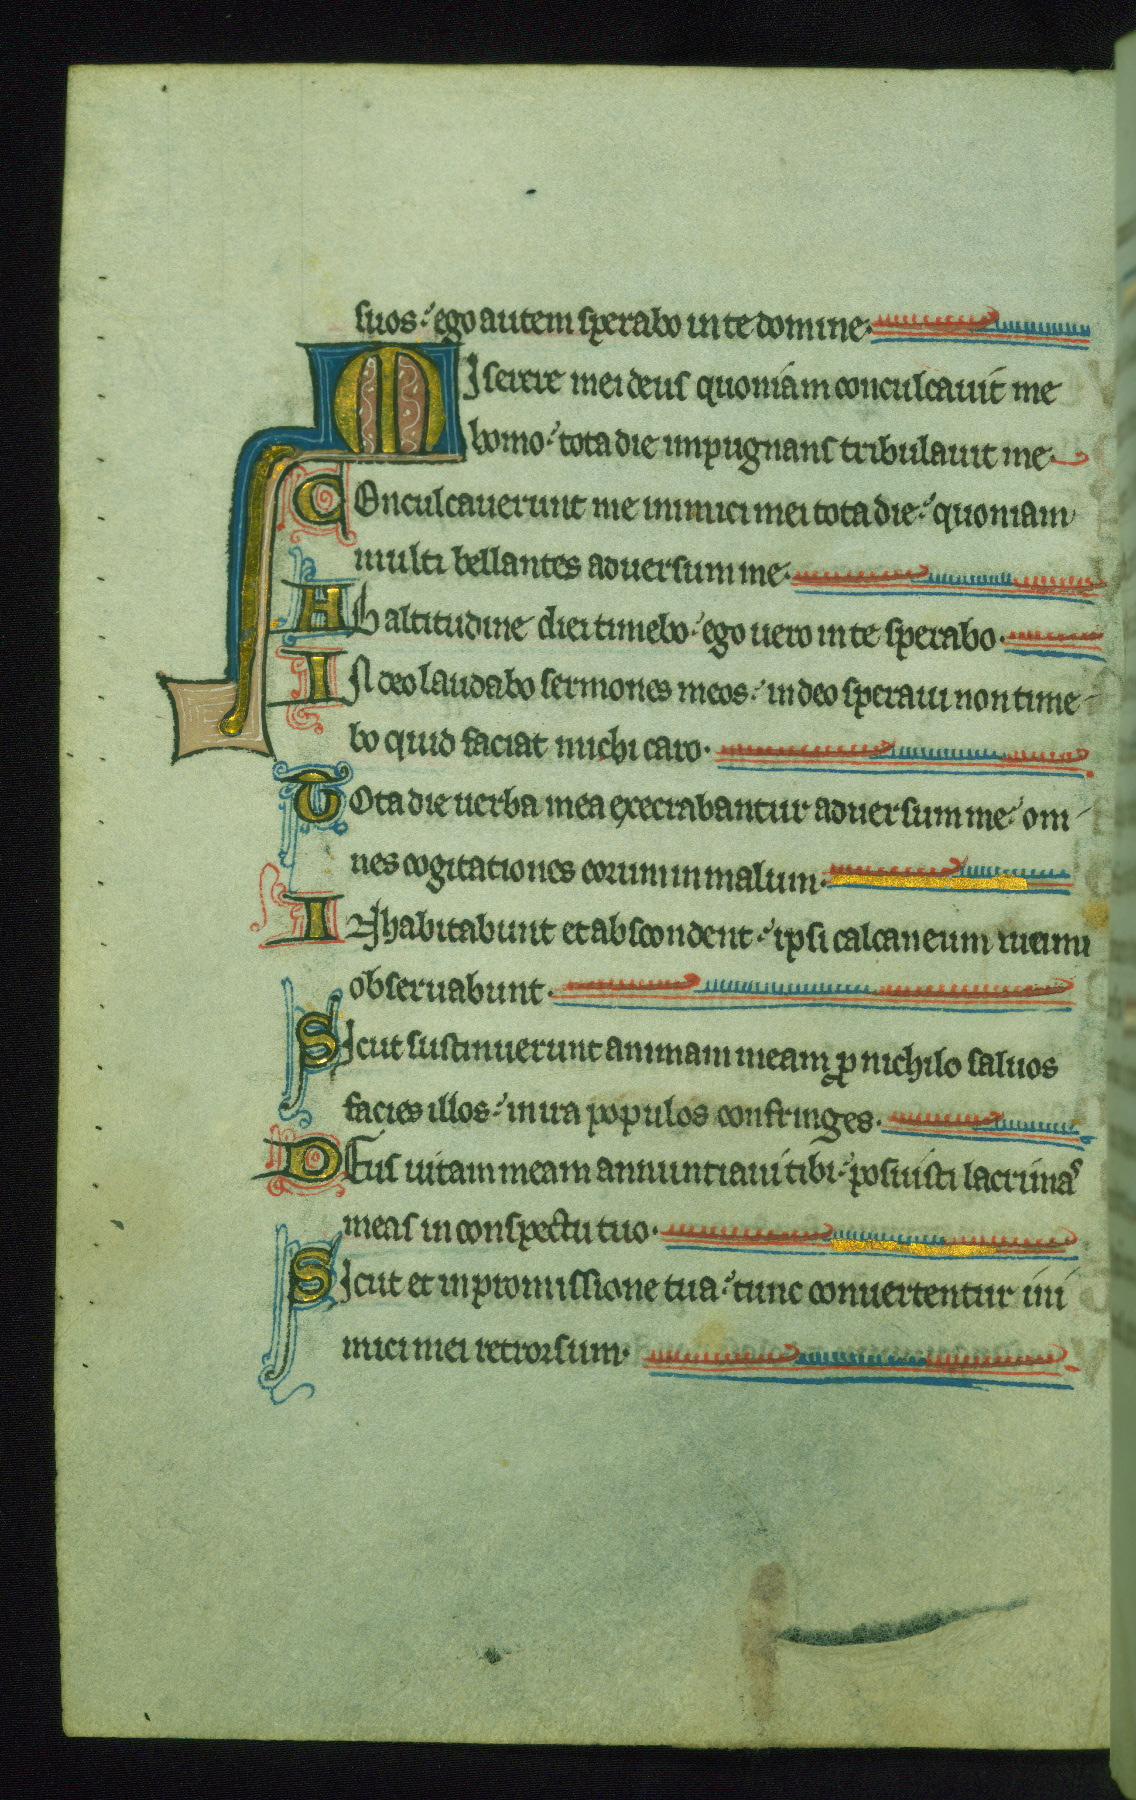 suos: ego autem sperabo in te domine.
Miserere mei deus quoniam conculcauit me
homo: tota die inpugnans tribulauit me.
Conculcauerunt me inimici mei tota die: quoniam
multi bellantes aduersum me.
Ab altitudine diei timebo: ego uero in te sperabo.
In deo laudabo sermones meos: in deo speraui non time
bo quid faciat michi caro.
Tota die uerba mea execrabantur aduersum me: om
nes cogitationes eorum in malum.
Inhabitabunt et abscondent: ipsi calcaneum meum
obseruabunt.
Sicut sustinuerunt animam meam ꝓ nichilo saluos
facies illos: in ira populos confringes.
Deus uitam meam annuntiaui tibi: posuisti lacrimas
meas in conspectu tuo.
Sicut et in promissione tua: tunc conuertentur ini
mici mei retrorsum.